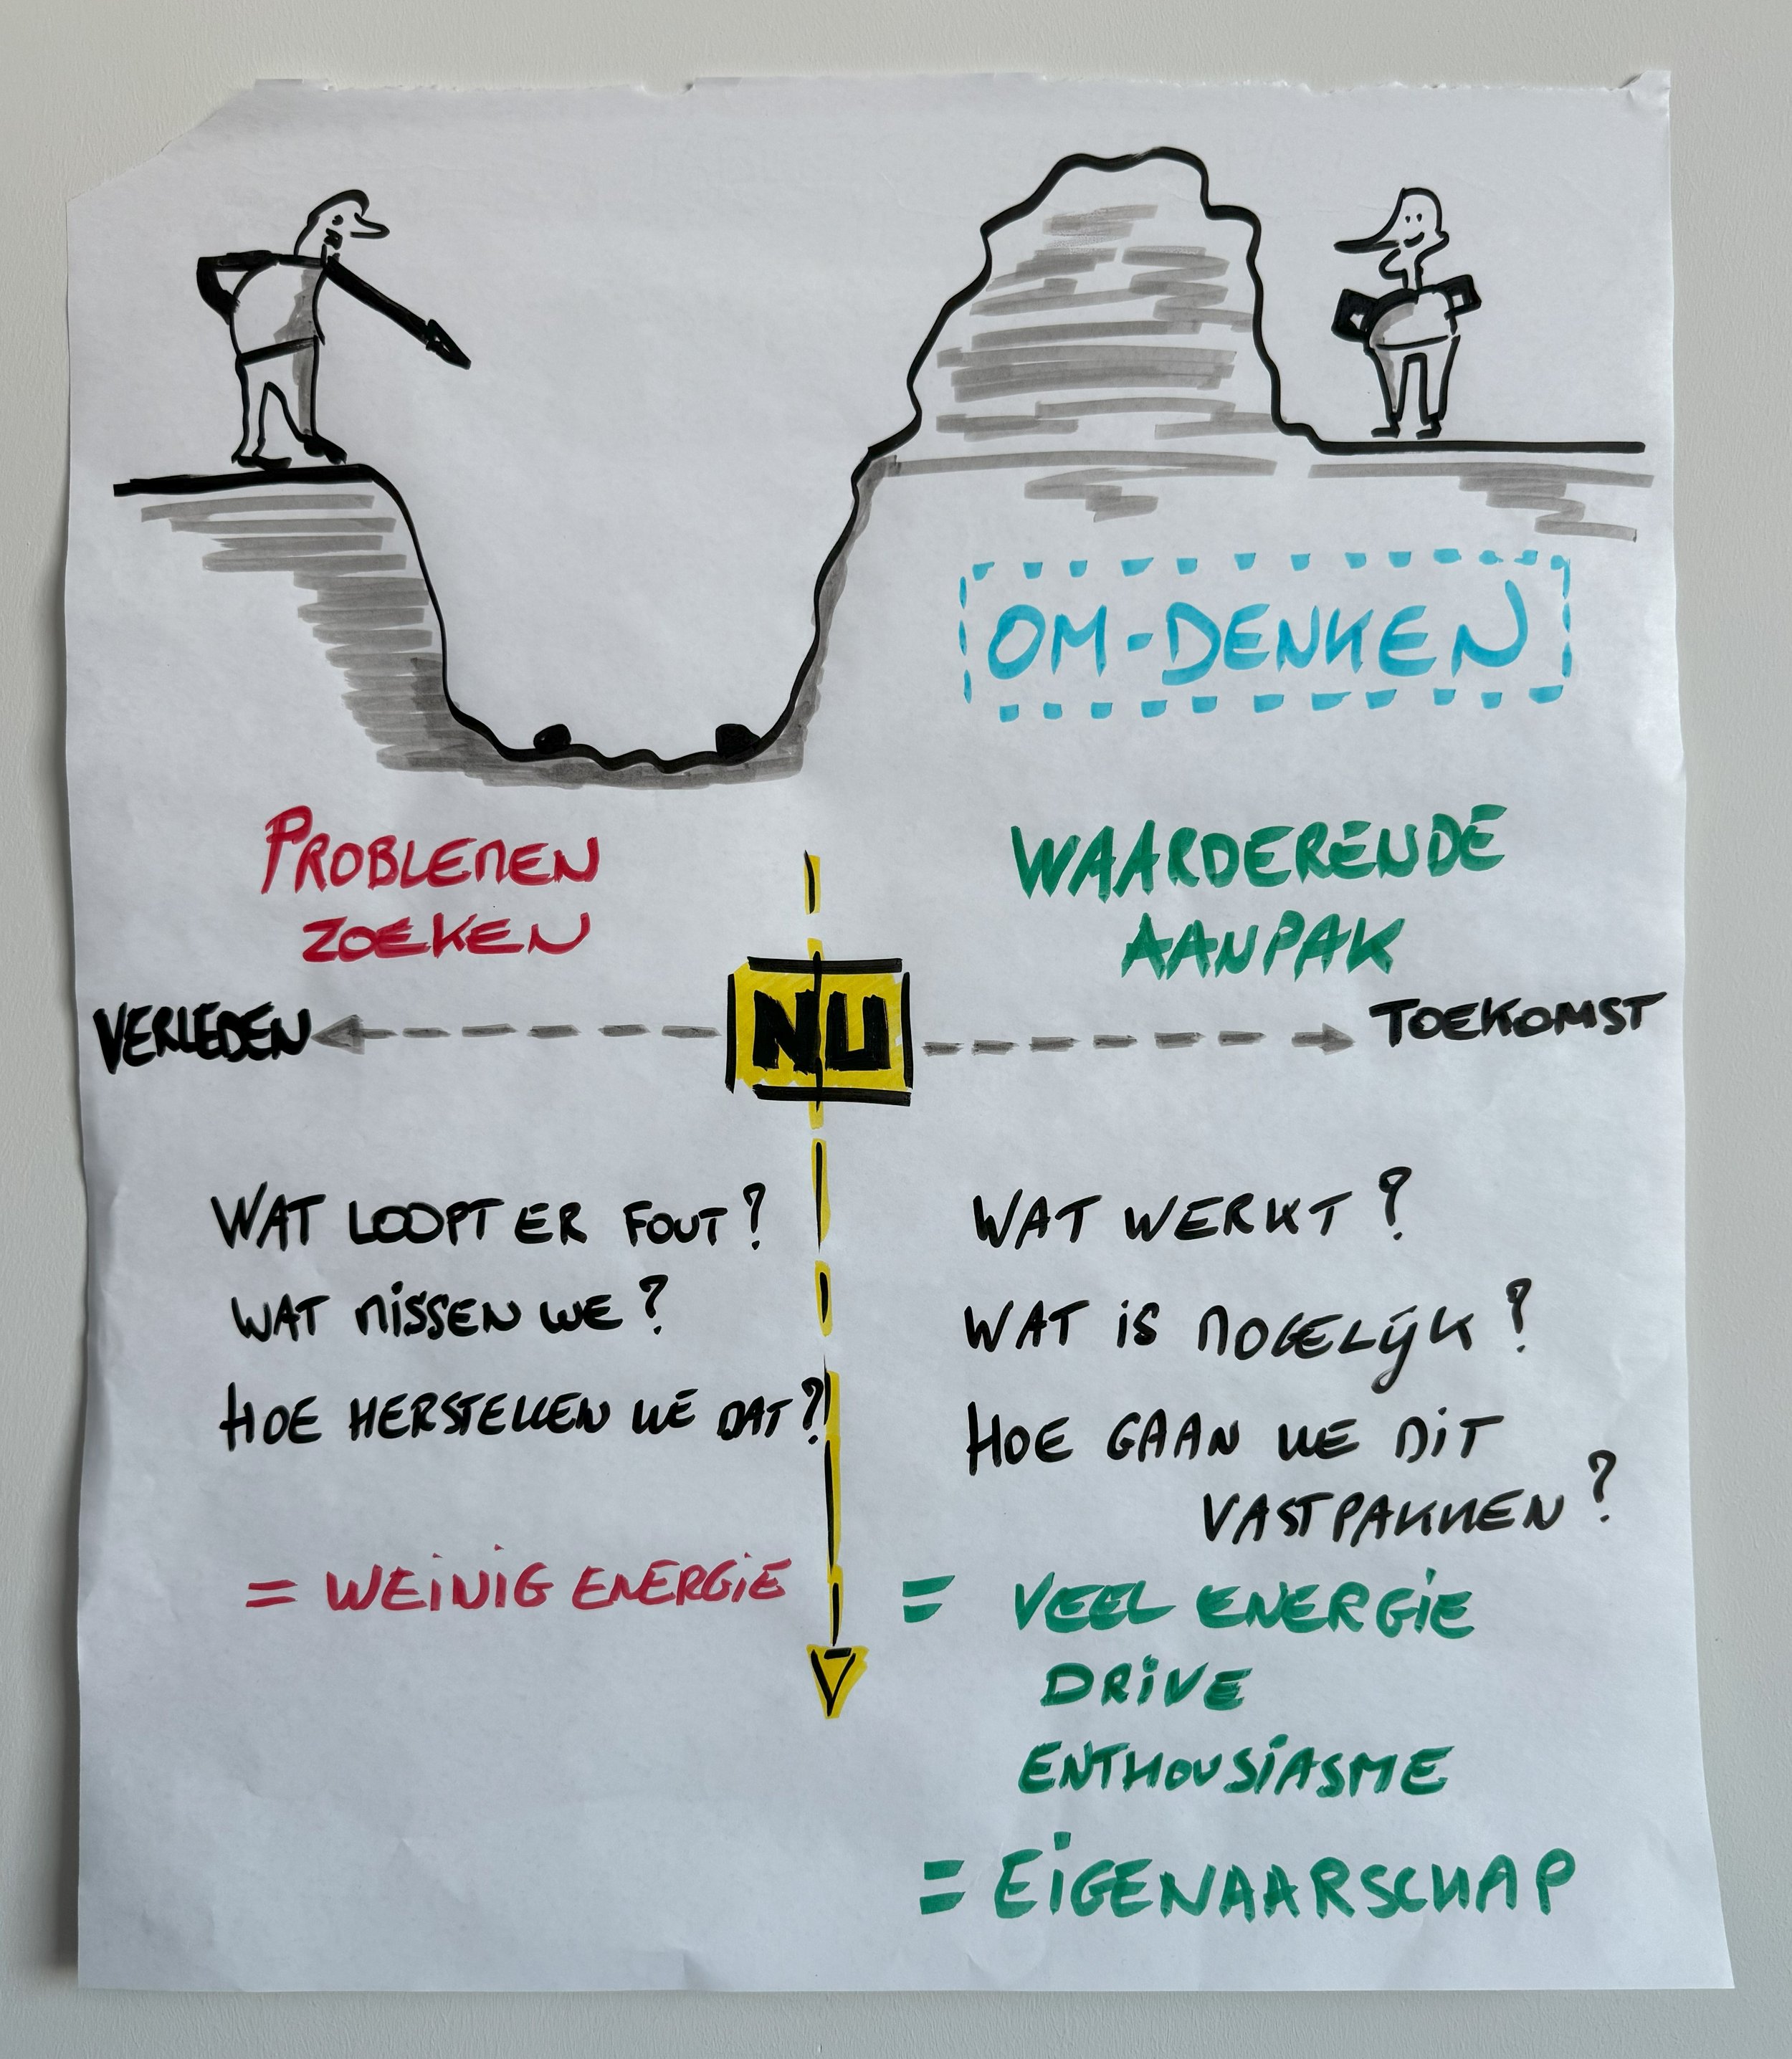 OM-DENKEN
PROBLEMEN
ZOEKEN
WAARDERENDE
AANPAK
VERLEDEN
NU
TOEKOMST
WAT LOOPT ER FOUT?
WAT MISSEN WE?
HOE HERSTELLEN WE DAT?
= WEINIG ENERGIE
WAT WERKT?
WAT IS MOGELIJK?
HOE GAAN WE DIT
VASTPAKKEN?
= VEEL ENERGIE
DRIVE
ENTHOUSIASME
= EIGENAARSCHAP